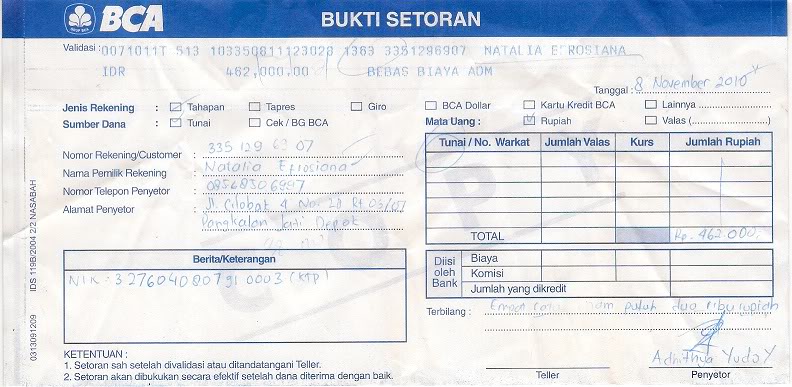 BCA BUKTI SETORAN
Validasi : 0071011T 513 103350811123028 1363 3351296907 NATALIA EFROSIANA
IDR 462,000.00 BEBAS BIAYA ADM
Tanggal : 8 November 2010
Jenis Rekening : Tahapan Tapres Giro BCA Dollar Kartu Kredit BCA Lainnya
Sumber Dana : Tunai Cek / BG BCA Mata Uang : Rupiah Valas (
Nomor Rekening/Customer : 335 129 69 07
Nama Pemilik Rekening : Natalia Efrosiana
Nomor Telepon Penyetor :
Alamat Penyetor : Jl. Cilobat 4 No. 28 Rt 03/07
Pangkalan Jati Depok
Tunai / No. Warkat Jumlah Valas Kurs Jumlah Rupiah
TOTAL Rp. 462.000,-
COPY
Berita/Keterangan
NIK : 3276040807910003 (KTP)
Diisi oleh Bank
Biaya
Komisi
Jumlah yang dikredit
Terbilang : Empat ratus enam puluh dua ribu rupiah
KETENTUAN :
1. Setoran sah setelah divalidasi atau ditandatangani Teller.
2. Setoran akan dibukukan secara efektif setelah dana diterima dengan baik.
Teller
Adhithya Yuda Y
Penyetor
0313091209 IDS 119B/2004 2/2 NASABAH